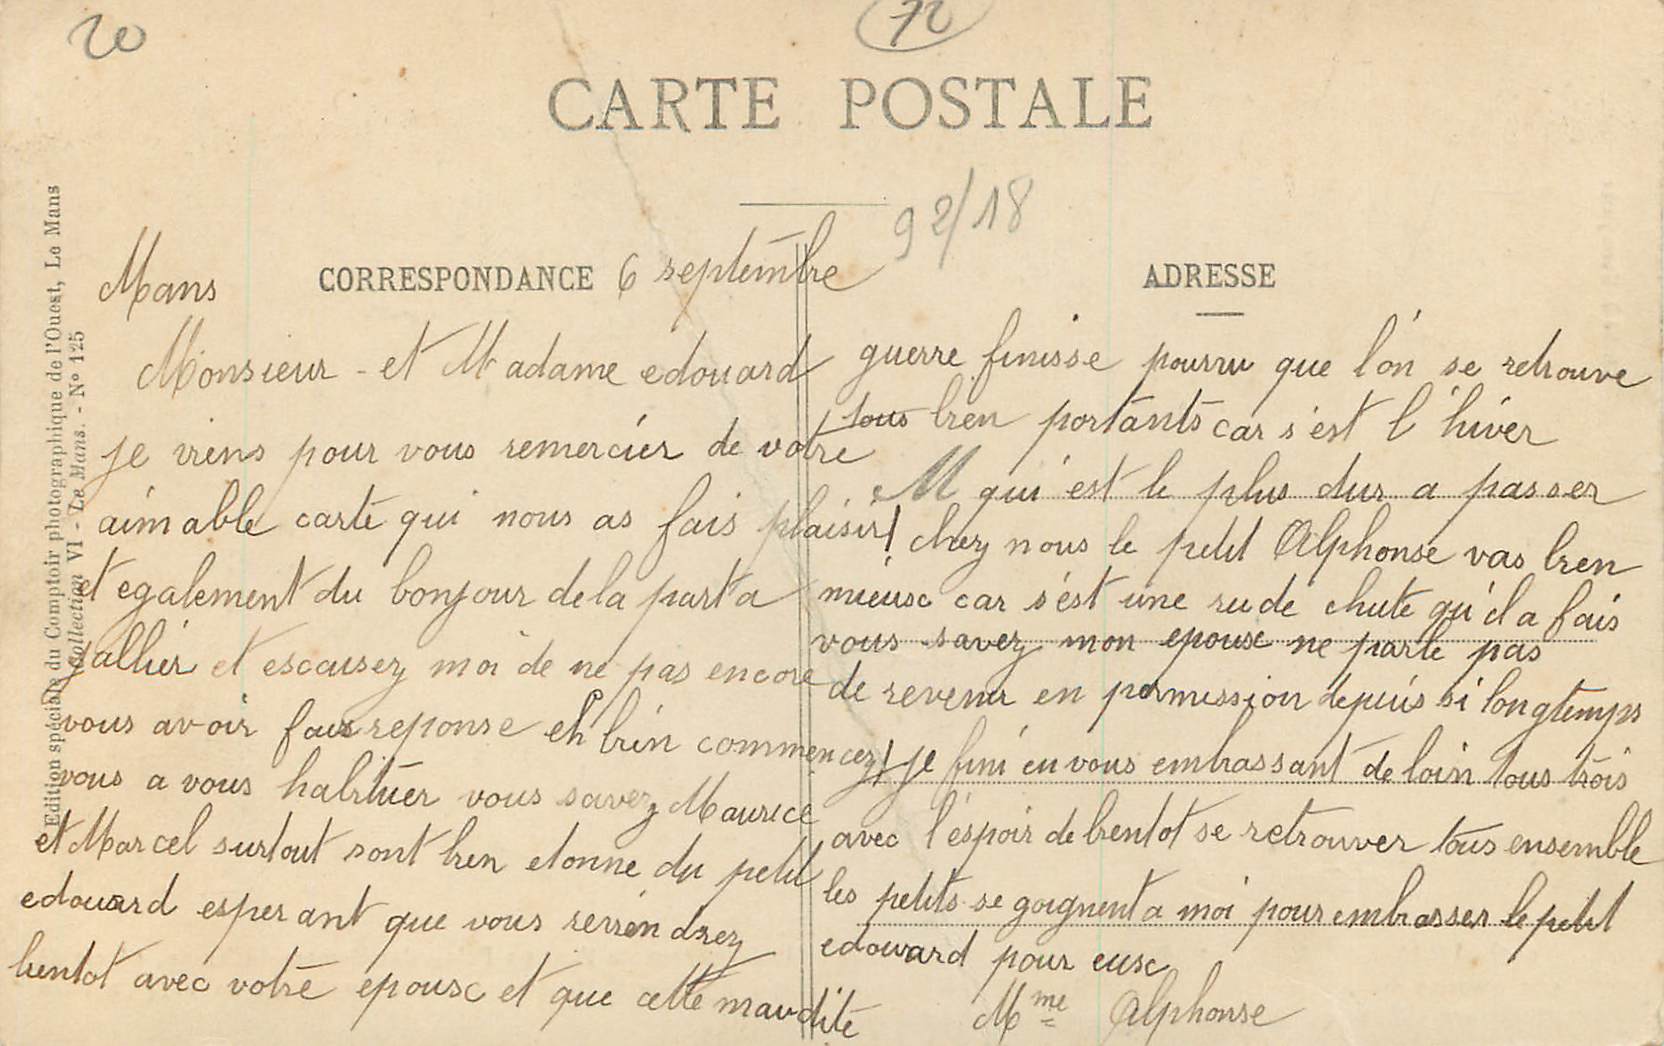 20
72
CARTE POSTALE
92/18
Edition spéciale du Comptoir photographique de l'Ouest, Le Mans
Collection VI - Le Mans. - N° 125
CORRESPONDANCE
ADRESSE
Mans 6 septembre
Monsieur - et Madame edouard
je viens pour vous remercier de votre
aimable carte qui nous as fais plaisir!
et egalement du bonjour de la part a
gallier et escusez moi de ne pas encore
vous avoir fais reponse eh bien commencez!
vous a vous habituer vous savez Maurice
et Marcel surtout sont bien etonne du petit
edouard esperant que vous reviendrez
bientot avec votre epouse et que cette maudite
guerre finisse pourvu que l'on se retrouve
tous bien portants car s'est l'hiver
M qui est le plus dur a passer
chez nous le petit Alphonse vas bien
mieusc car s'est une rude chute qu'il a fais
vous savez mon epouse ne parle pas
de revenir en permission depuis si longtemps
je fini en vous embrassant de loin tous trois
avec l'espoir de bientot se retrouver tous ensemble
les petits se goignent a moi pour embrasser le petit
edouard pour eusc
Mme Alphonse